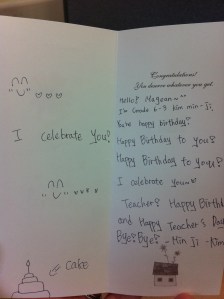 I celebrate You!
CAKE
Congratulations!
You deserve whatever you get.
Hello? Magean~
I'm Grade 6-3 kim min-Ji.
You're happy birthday?
Happy Birthday to you?
Happy Birthday to you?
I celebrate you
Teacher? Happy Birthd
and Happy Teacher's Day
Bye? Bye? - Min Ji - Kim